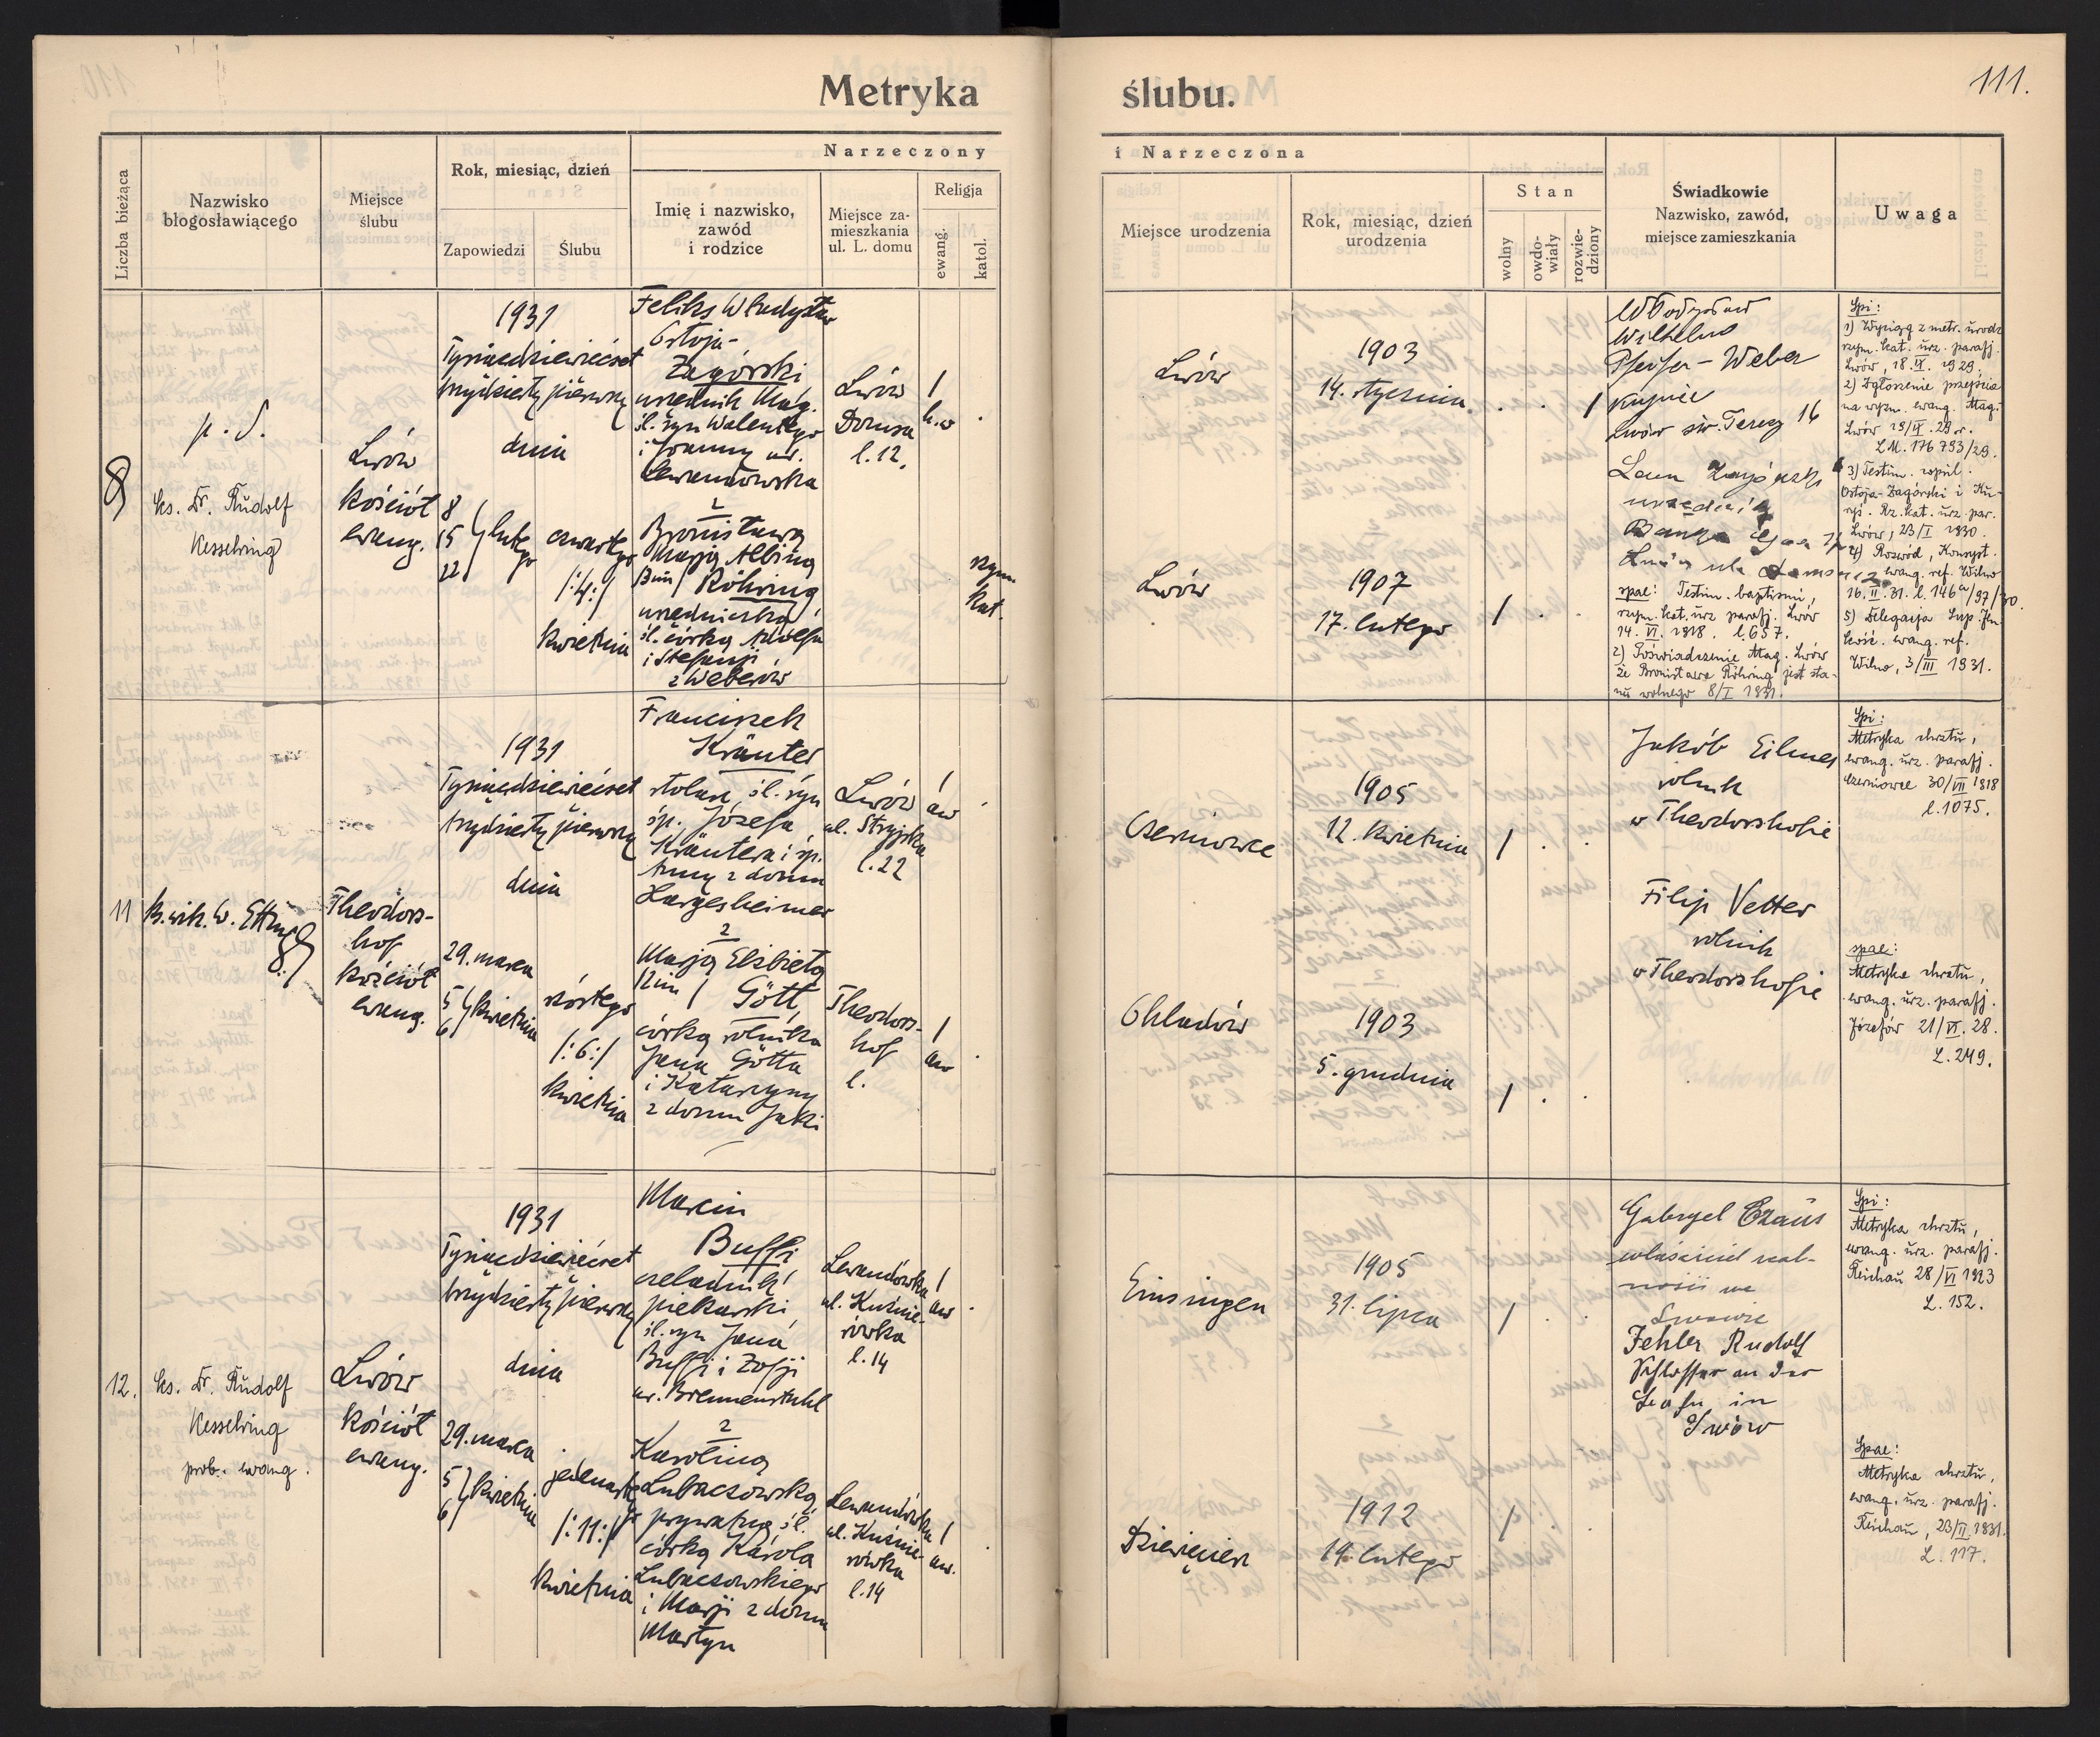 Metryka
ślubu.
111.
Liczba bieżąca
Nazwisko
błogosławiącego
Miejsce
ślubu
Rok, miesiąc, dzień
Zapowiedzi
Ślubu
Narzeczony
Imię i nazwisko,
zawód
i rodzice
Miejsce za-
mieszkania
ul. L. domu
Religja
ewang.
katol.
i Narzeczona
Miejsce urodzenia
Rok, miesiąc, dzień
urodzenia
Stan
wolny
owdo-
wiały
rozwie-
dziony
Świadkowie
Nazwisko, zawód,
miejsce zamieszkania
Uwaga
8
ks. Dr. Rudolf
Kesselring
Lwów
kościół
ewang.
1931
Tysiącdziewięćset
trzydziesty pierwszy
dnia
8
15
22
lutego
czwartego
/:4:/
kwietnia
Feliks Władysław
Ostoja-
Zagórski
urzędnik Mag.
śl. syn Walentego
i Joanny ur.
Lewandowska
2
Bronisława
Marja Albina
Röhring
urzędniczka
śl. córka Adolfa
i Stefanji
z Weberów
Lwów
Dwernickiego
l. 12.
1
h.w
rzym.
kat.
Lwów
1903
14. stycznia
1
Lwów
1907
17. lutego
1
Władysław
Wilhelm
Pfeifer-Weber
kupiec
Lwów św. Teresy 16
Leon Zagórski
urzędnik
Spi:
1) Wyciąg z metr. urodz
rzym. kat. urz. parafj.
Lwów, 18.IX.1929.
2) Zgłoszenie przejścia
na wyzn. ewang. Mag.
LM. 176793/29.
3) Testim. copul.
Ostoja-Zagórski i
rz. kat. urz. par.
Lwów, 23/I 1930.
4) Rozwód, Konsyst.
ewang. ref. Wilno
16.II.31. l. 146a/97/30.
5) Delegacja Sup. Jen.
kość. ewang. ref.
Wilno, 3/III 1931.
spae: Testim. baptismi,
rzym. kat. urz parafj. Lwów
14. VI. 1918. l. 657.
2) Poświadczenie Mag. Lwów
że Bronisława Röhring jest sta-
nu wolnego 8/I 1931.
11
Theodors-
hof
kościół
ewang.
1931
Tysiącdziewięćset
trzydziesty pierwszy
dnia
29. marca
5
6
kwietnia
szóstego
/:6:/
kwietnia
Franciszek
Kräuter
stolarz, śl. syn
śp. Józefa
Kräutera i śp.
Anny z domu
Hargesheimer
2
Marja Elżbieta
Gött,
córka rolnika
Jana Götta
i Katarzyny
z domu Jaki
Lwów
ul. Stryjska
l. 22
1
aw
Theodors-
hof
l.
1
aw
Czerniowce
1905
12. kwietnia
1
Chladów
1903
5. grudnia
1
Jakób Eilmes
rolnik
w Theodorshofie
Filip Vetter
rolnik
w Theodorshofie
Spi:
Metryka chrztu,
ewang. urz. parafj.
Czerniowce 30/VII 1918
l. 1075.
spae:
Metryka chrztu,
ewang. urz. parafj.
Józefów 21/VI. 28.
L. 249.
12.
ks. Dr. Rudolf
Kesselring
prob. ewang.
Lwów
Kościół
ewang.
1931
Tysiącdziewięćset
trzydziesty pierwszy
dnia
29. marca
5
6
kwietnia
jedenastego
/:11:/
kwietnia
Marcin
Buffi
czeladnik
piekarski
śl. syn Jana
Buffi i Zofji
ur. Brennenstuhl
2
Karolina
Lubaczowska,
prywatna, śl.
córka Karola
Lubaczowskiego
i Marji z domu
Martyn
Lewandówka
ul. Kuźnie-
rówka
l. 14
1
aw.
Lewandówka
ul. Kuźnie-
rówka
l. 14
1
aw.
Einsingen
1905
31. lipca
1
Dziewięcierz
1912
14. lutego
1
Gabryel Czaus
właściciel real-
ności we
Lwowie
Fehler Rudolf
Schlosser an der
in
Lwów
Spi:
Metryka chrztu,
ewang. urz. parafj.
Reichau 28/VI 1923
L. 152.
Spae:
Metryka chrztu,
ewang. urz. parafj.
Reichau, 23/II 1931.
L. 117.